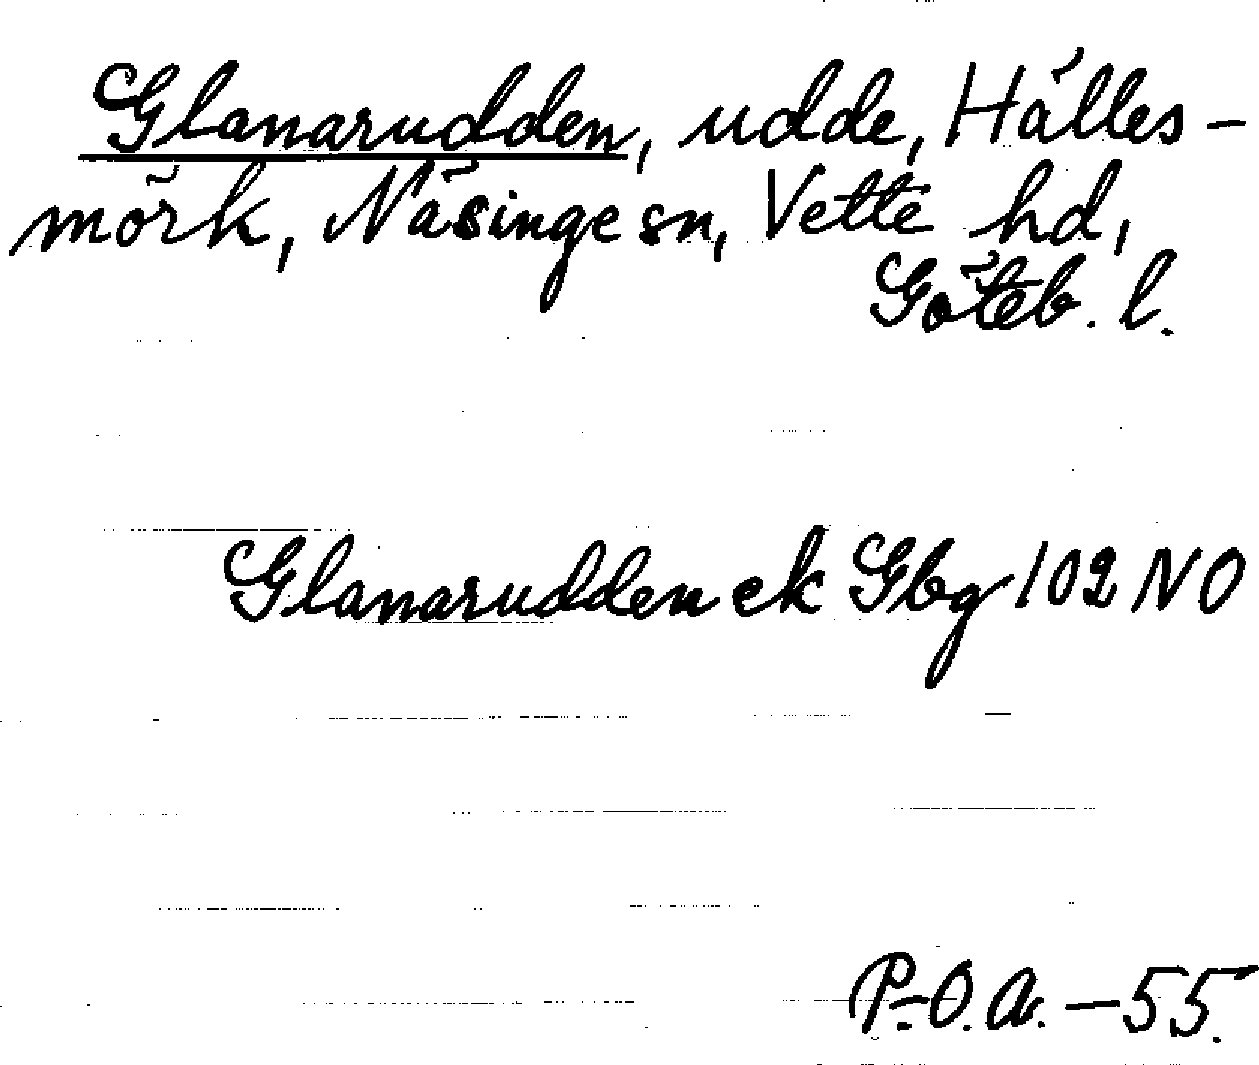 Glanarudden, udde, Hälles-
mörk, Näsinge sn, Vette hd,
Göteb. l.
Glanarudden ek Gbg 102 NO
P.-O. A. -55.